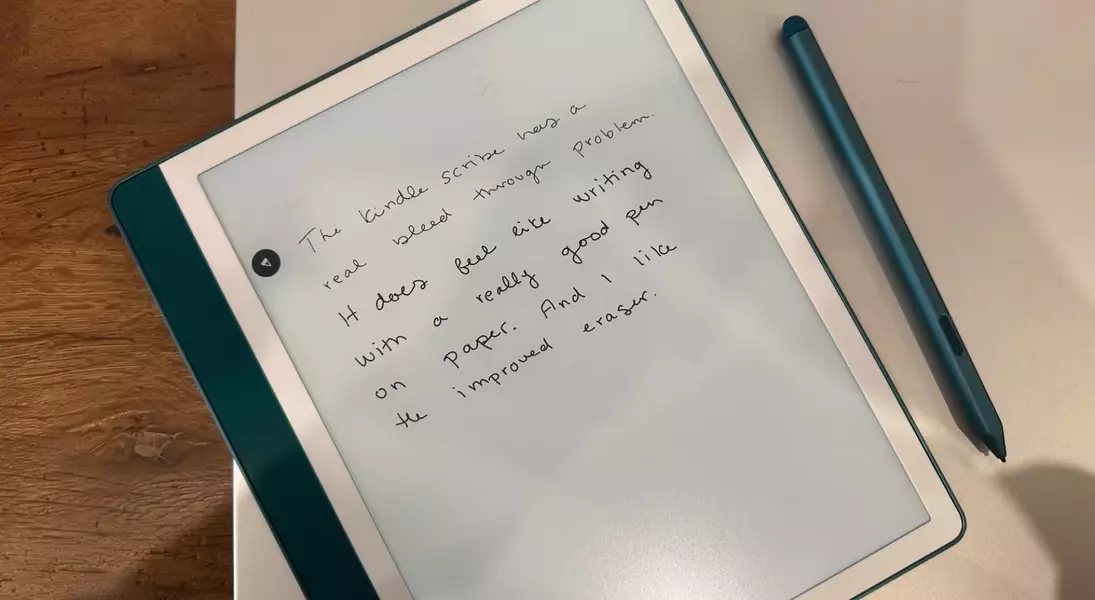 The kindle scribe has a
real bleed through problem.
It does feel like writing
with a really good pen
on paper. And I like
the improved eraser.